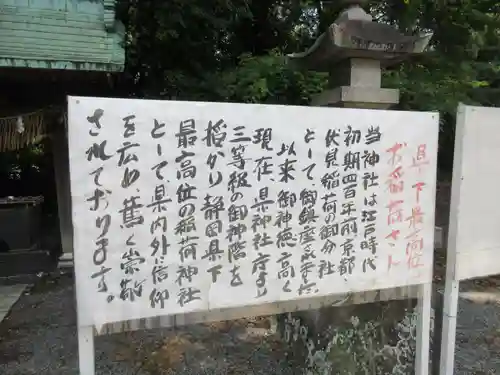 県下最高位
お稲荷さん
当神社は江戸時代
初期四百年前京都
伏見稲荷の御分社
として、御鎮座以来
以来御神徳高く
現在、県神社庁より
三等級の御神階を
授かり静岡県下
最高位の稲荷神社
として県内外に信仰
を広め、篤く崇敬
されております。